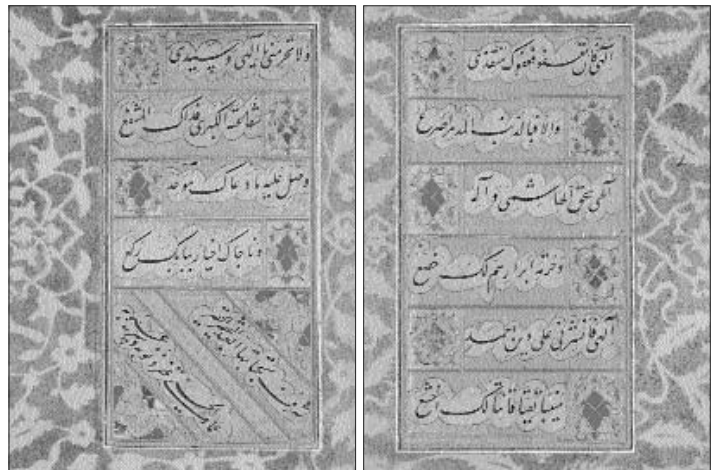 الهی فان تعفو فعفوک منقذی
والا فبالذنب المدمر اصرع
الهی بحق الهاشمی و آله
وحرمة ابرار هم لک خضع
الهی فانشرنی علی دین احمد
منیبا تقیا قانتا لک اخشع
ولا تحرمنی یا الهی و سیدی
شفاعته الکبری فذاک المشفع
وصل علیه ما دعاک موحد
وناجاک اخیار ببابک رکع